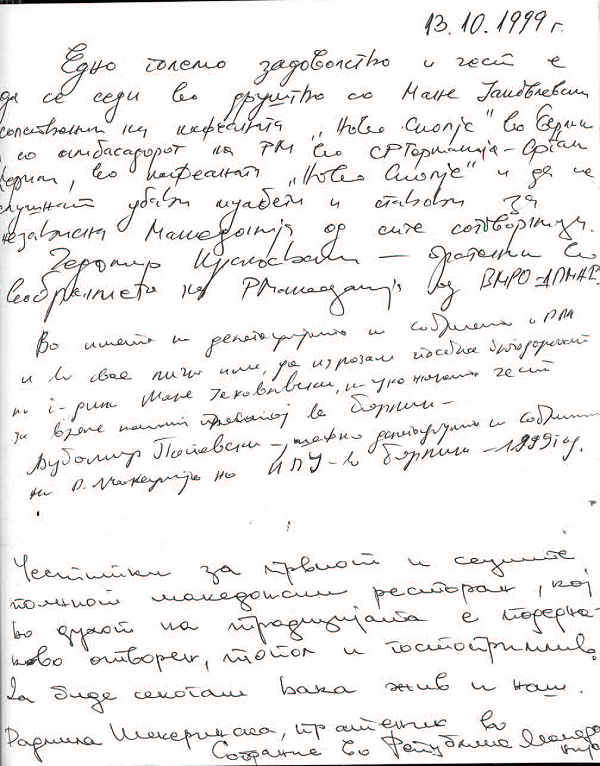 13.10.1999 г.
Едно големо задоволство и чест е
да се седи во друштво со Мане Јаковлевски
сопственик на кафеаната „Ново Скопје" во Берлин
и со амбасадорот на РМ во СРГерманија - Срѓан
Керим, во кафеаната „Ново Скопје" и да се
слушнат убави муабети и ставови за
независна Македонија од сите соговорници.
Чедомир Краљевски — пратеник во
Собранието на РМакедонија од ВМРО-ДПМНЕ
Во името на делегацијата и собранието на РМ
и во свое лично име, да изразам посебна благодарност
на г-дин Мане Јаковлевски, на укажаната чест
за време нашиот престој во Берлин -
Љубомир Поповски - делегација и собрание
на Р. Македонија на ИПУ - во Берлин - 1999 год.
Честитки за првиот и сеуште
полниот македонски ресторан, кој
во духот на традицијата е подеднакво
отворен, топол и гостопримлив.
Да биде секогаш вака жив и наш.
Радмила Шекеринска, пратеник во
Собрание во Република Македонија